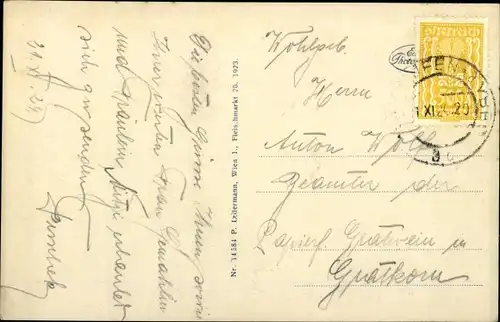 Die besten Grüsse Ihnen sowie
Ihrer werten Frau Gemahlin
und Fräulein erlaubt
sich zu senden
Nr. 14384 P. Ledermann, Wien I., Fleischmarkt 20. 1923.
Wohlgeb.
Herrn
Anton Wolf
Beamter der
Papierf. Gratwein in
Gratkorn